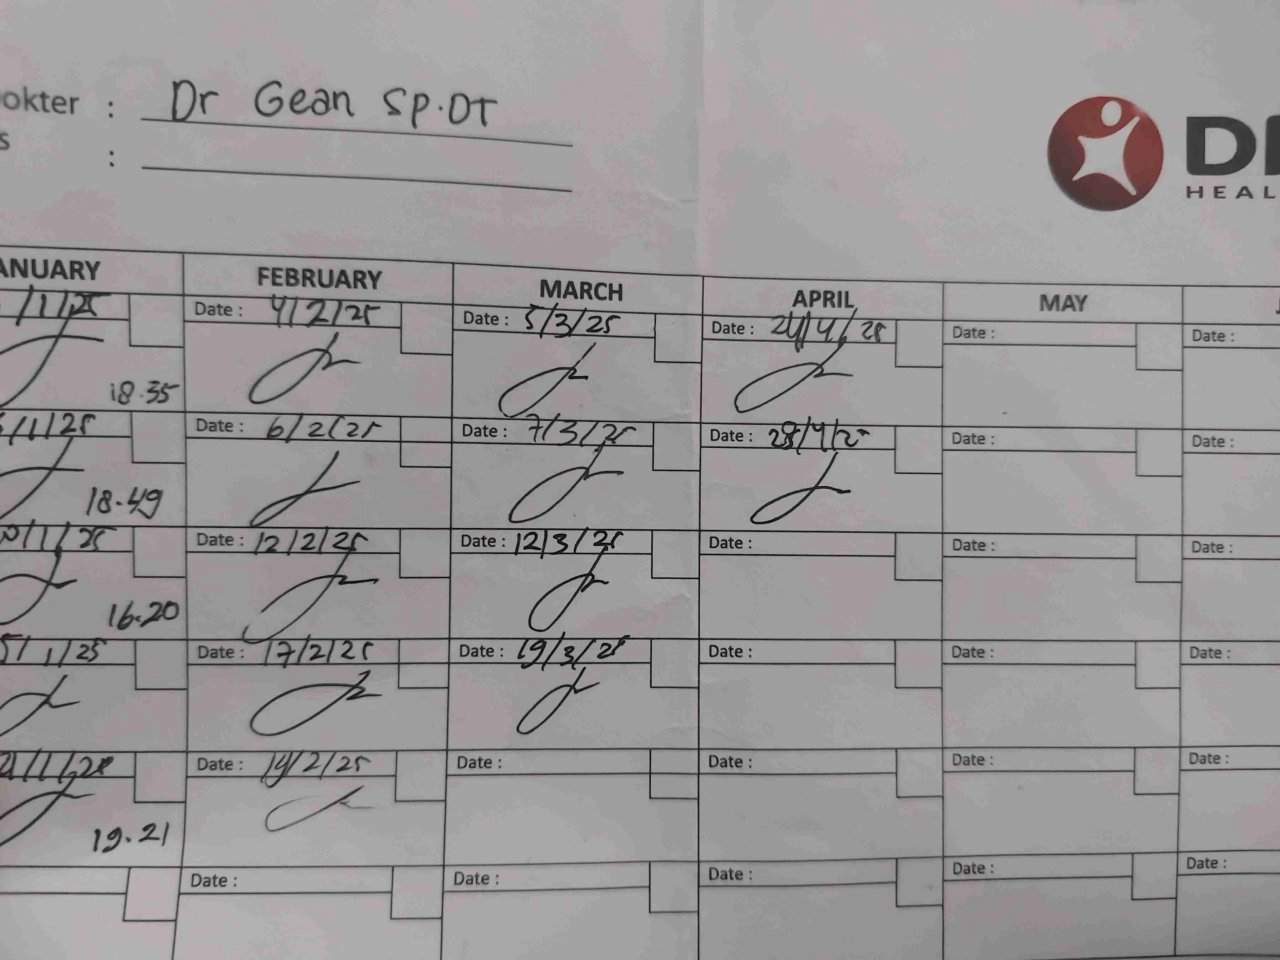 okter : Dr Gean SP.OT
s :
D
HEAL
ANUARY FEBRUARY MARCH APRIL MAY
/1/25 Date : 4/2/25 Date : 5/3/25 Date : 24/4/25 Date : Date :
18.35
/1/25 Date : 6/2/25 Date : 7/3/25 Date : 28/4/2 Date : Date :
18.49
0/1/25 Date : 12/2/25 Date : 12/3/25 Date : Date : Date :
16.20
5/1/25 Date : 17/2/25 Date : 19/3/25 Date : Date : Date :
21/1/25 Date : 19/2/25 Date : Date : Date : Date :
19.21
Date : Date : Date : Date : Date :